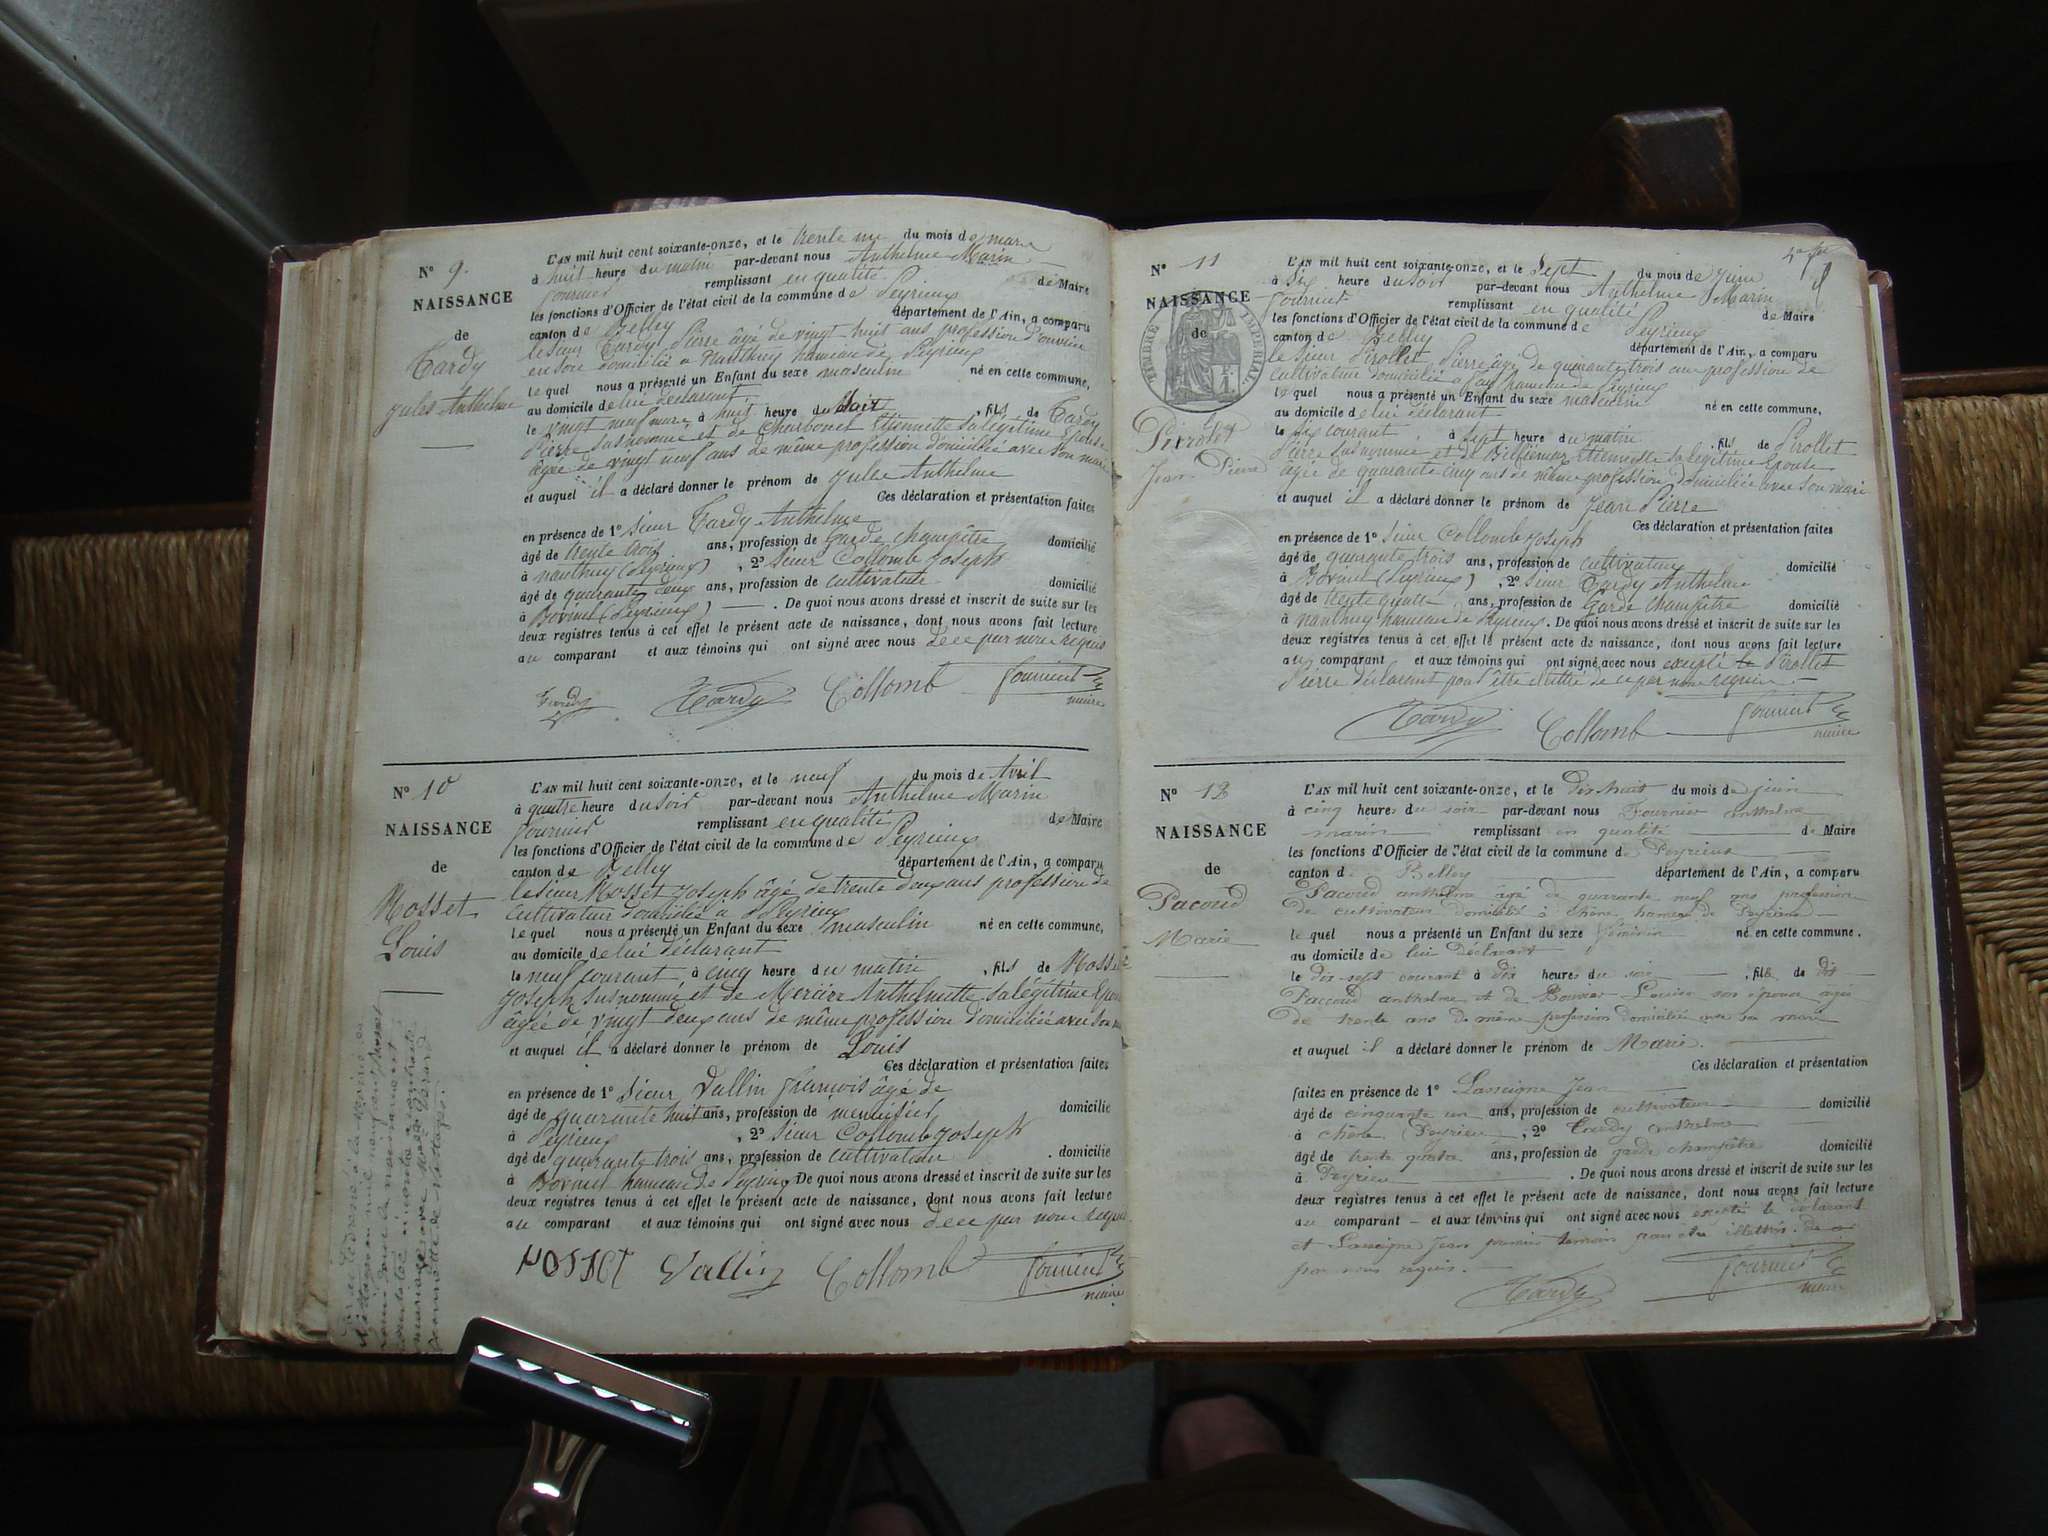 N° 9.
NAISSANCE
de
Tardy
Jules Anthelme
L'AN mil huit cent soixante-onze, et le trente un du mois de mars
à huit heure du matin par-devant nous Anthelme Marin
fournier remplissant en qualité de Maire
les fonctions d'Officier de l'état civil de la commune de Peyrieux
canton de Belley département de l'Ain, a comparu
le sieur Tardy Pierre âgé de vingt huit ans profession d'ouvrier
en soie domicilié à Nanthuy hameau de Peyrieux
lequel nous a présenté un Enfant du sexe masculin né en cette commune,
au domicile de lui déclarant
le vingt neuf mars à huit heure du soir, fils de Tardy
Pierre susnommé et de Charbonet Etiennette sa légitime Epouse
âgée de vingt neuf ans de même profession domiciliée avec son mari
et auquel il a déclaré donner le prénom de Jules Anthelme
Ces déclaration et présentation faites
en présence de 1° sieur Tardy Anthelme
âgé de trente trois ans, profession de Garde champêtre domicilié
à Nanthuy (Peyrieux), 2° sieur Collomb Joseph
âgé de quarante deux ans, profession de cultivateur domicilié
à Bovinel (Peyrieux) . De quoi nous avons dressé et inscrit de suite sur les
deux registres tenus à cet effet le présent acte de naissance, dont nous avons fait lecture
au comparant et aux témoins qui ont signé avec nous de ce par nous requis
Tardy Tardy Collomb fournier
maire
N° 10
NAISSANCE
de
Mosset
Louis
L'AN mil huit cent soixante-onze, et le neuf du mois de Avril
à quatre heure du soir par-devant nous Anthelme Marin
fournier remplissant en qualité de Maire
les fonctions d'Officier de l'état civil de la commune de Peyrieux
canton de Belley département de l'Ain, a comparu
le sieur Mosset Joseph âgé de trente deux ans profession de
cultivateur domicilié à Peyrieux
lequel nous a présenté un Enfant du sexe masculin né en cette commune,
au domicile de lui déclarant
le neuf courant à cinq heure du matin, fils de Mosset
Joseph susnommé et de Mercier Anthelmette sa légitime Epouse
âgée de vingt deux ans de même profession domiciliée avec son
et auquel il a déclaré donner le prénom de Louis
Ces déclaration et présentation faites
en présence de 1° sieur Vallin françois âgé de
âgé de quarante huit ans, profession de menuisier domicilié
à Peyrieux, 2° sieur Collomb Joseph
âgé de quarante trois ans, profession de cultivateur . domicilié
à Bovinel hameau de Peyrieux De quoi nous avons dressé et inscrit de suite sur les
deux registres tenus à cet effet le présent acte de naissance, dont nous avons fait lecture
au comparant et aux témoins qui ont signé avec nous de ce par nous requis
MOSSET Vallin Collomb fournier
maire
N° 11
NAISSANCE
de
TIMBRE IMPÉRIAL
Pirollet
Jean Pierre
L'AN mil huit cent soixante-onze, et le sept du mois de Juin
à six heure du soir par-devant nous Anthelme Marin
fournier remplissant en qualité de Maire
les fonctions d'Officier de l'état civil de la commune de Peyrieux
canton de Belley département de l'Ain, a comparu
le sieur Pirollet Pierre âgé de quarante trois ans profession de
cultivateur domicilié à fay hameau de Peyrieux
lequel nous a présenté un Enfant du sexe masculin né en cette commune,
au domicile de lui déclarant
le six courant, à sept heure du matin, fils de Pirollet
Pierre susnommé et de Etiennette sa légitime Epouse
âgée de quarante cinq ans de même profession domiciliée avec son mari
et auquel il a déclaré donner le prénom de Jean Pierre
Ces déclaration et présentation faites
en présence de 1° sieur Collomb Joseph
âgé de quarante trois ans, profession de cultivateur domicilié
à Bovinel (Peyrieux), 2° sieur Tardy Anthelme
âgé de trente quatre ans, profession de Garde champêtre domicilié
à Nanthuy hameau de Peyrieux. De quoi nous avons dressé et inscrit de suite sur les
deux registres tenus à cet effet le présent acte de naissance, dont nous avons fait lecture
au comparant et aux témoins qui ont signé avec nous excepté le Pirollet
Pierre déclarant pour être illettré de ce par nous requis.
Tardy Collomb fournier
maire
N° 12
NAISSANCE
de
Pacoud
Marie
L'AN mil huit cent soixante-onze, et le dix huit du mois de juin
à cinq heures du soir par-devant nous Fournier anthelme
marin remplissant en qualité de Maire
les fonctions d'Officier de l'état civil de la commune de Peyrieux
canton de Belley département de l'Ain, a comparu
Pacoud anthelme âgé de quarante neuf ans profession
de cultivateur domicilié à Chêne hameau de Peyrieux
lequel nous a présenté un Enfant du sexe féminin né en cette commune.
au domicile de lui déclarant
le dix-sept courant à dix heures du soir, fille de dit
Pacoud anthelme et de Bouvier Louise son épouse âgée
de trente ans de même profession domiciliée avec son mari
et auquel il a déclaré donner le prénom de Marie.
Ces déclaration et présentation
faites en présence de 1° Lasseigne Jean
âgé de cinquante un ans, profession de cultivateur domicilié
à Chêne (Peyrieu), 2° Tardy anthelme
âgé de trente quatre ans, profession de garde champêtre domicilié
à Peyrieu . De quoi nous avons dressé et inscrit de suite sur les
deux registres tenus à cet effet le présent acte de naissance, dont nous avons fait lecture
au comparant et aux témoins qui ont signé avec nous excepté le déclarant
et Lasseigne Jean premier témoin pour être illettrés de ce
par nous requis.
Tardy fournier
maire